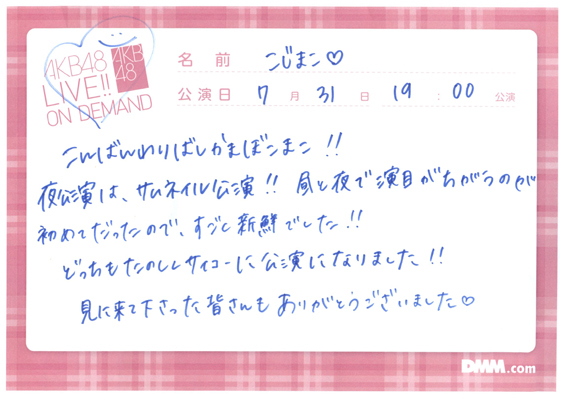 AKB48
LIVE!!
ON DEMAND
AKB
48
名 前 こじまこ♡
公演日 7 月 31 日 19 : 00 公演
こんばんわりばしかまぼこまこ!!
夜公演は、サムネイル公演!! 昼と夜で演目がちがうのが
初めてだったので、すごく新鮮でした!!
どっちもたのしくサイコーに公演になりました!!
見に来て下さった皆さんもありがとうございました♡
DMM.com